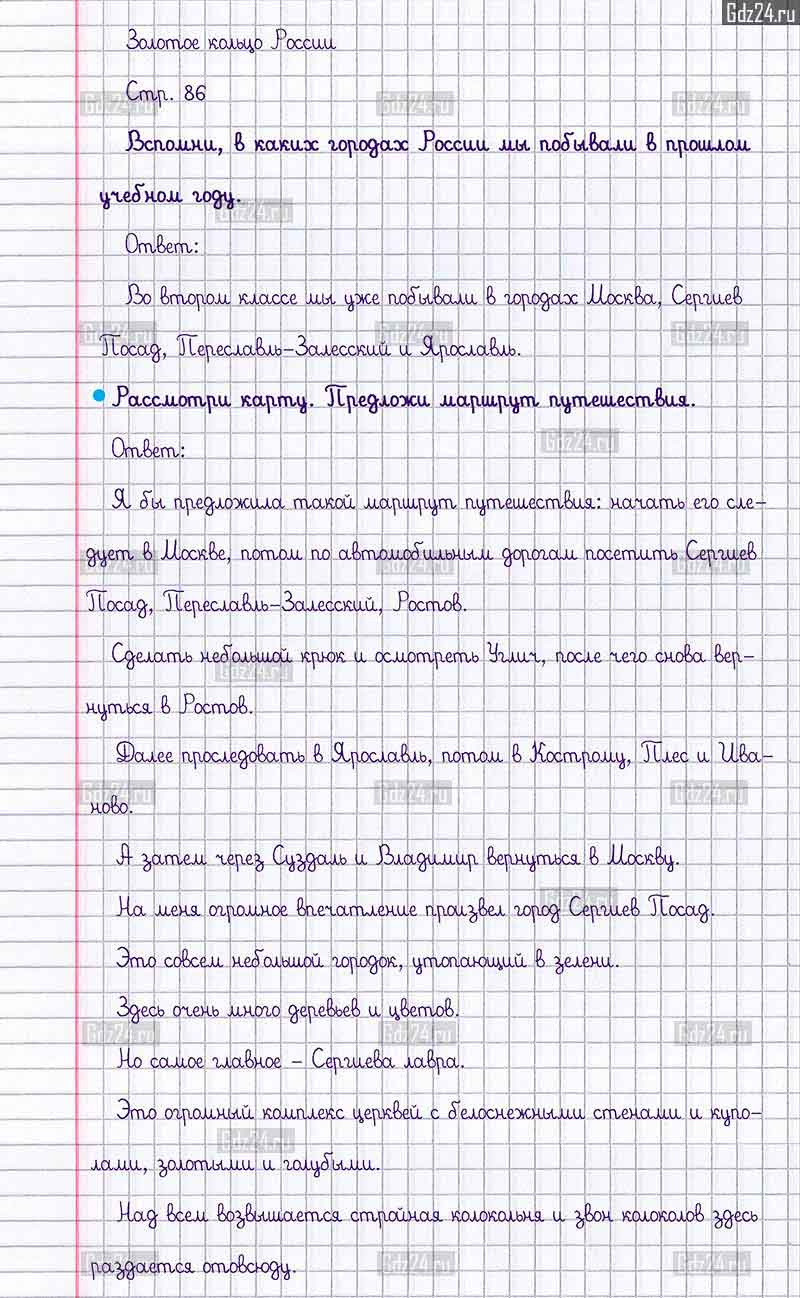 Gdz24.ru
Золотое кольцо России
Стр. 86
Вспомни, в каких городах России мы побывали в прошлом
учебном году.
Ответ:
Во втором классе мы уже побывали в городах Москва, Сергиев
Посад, Переславль-Залесский и Ярославль.
Рассмотри карту. Предложи маршрут путешествия.
Ответ:
Я бы предложила такой маршрут путешествия: начать его сле-
дует в Москве, потом по автомобильным дорогам посетить Сергиев
Посад, Переславль-Залесский, Ростов.
Сделать небольшой крюк и осмотреть Углич, после чего снова вер-
нуться в Ростов.
Далее проследовать в Ярославль, потом в Кострому, Плес и Ива-
ново.
А затем через Суздаль и Владимир вернуться в Москву.
На меня огромное впечатление произвел город Сергиев Посад.
Это совсем небольшой городок, утопающий в зелени.
Здесь очень много деревьев и цветов.
Но самое главное – Сергиева лавра.
Это огромный комплекс церквей с белоснежными стенами и купо-
лами, золотыми и голубыми.
Над всем возвышается стройная колокольня и звон колоколов здесь
раздается отовсюду.